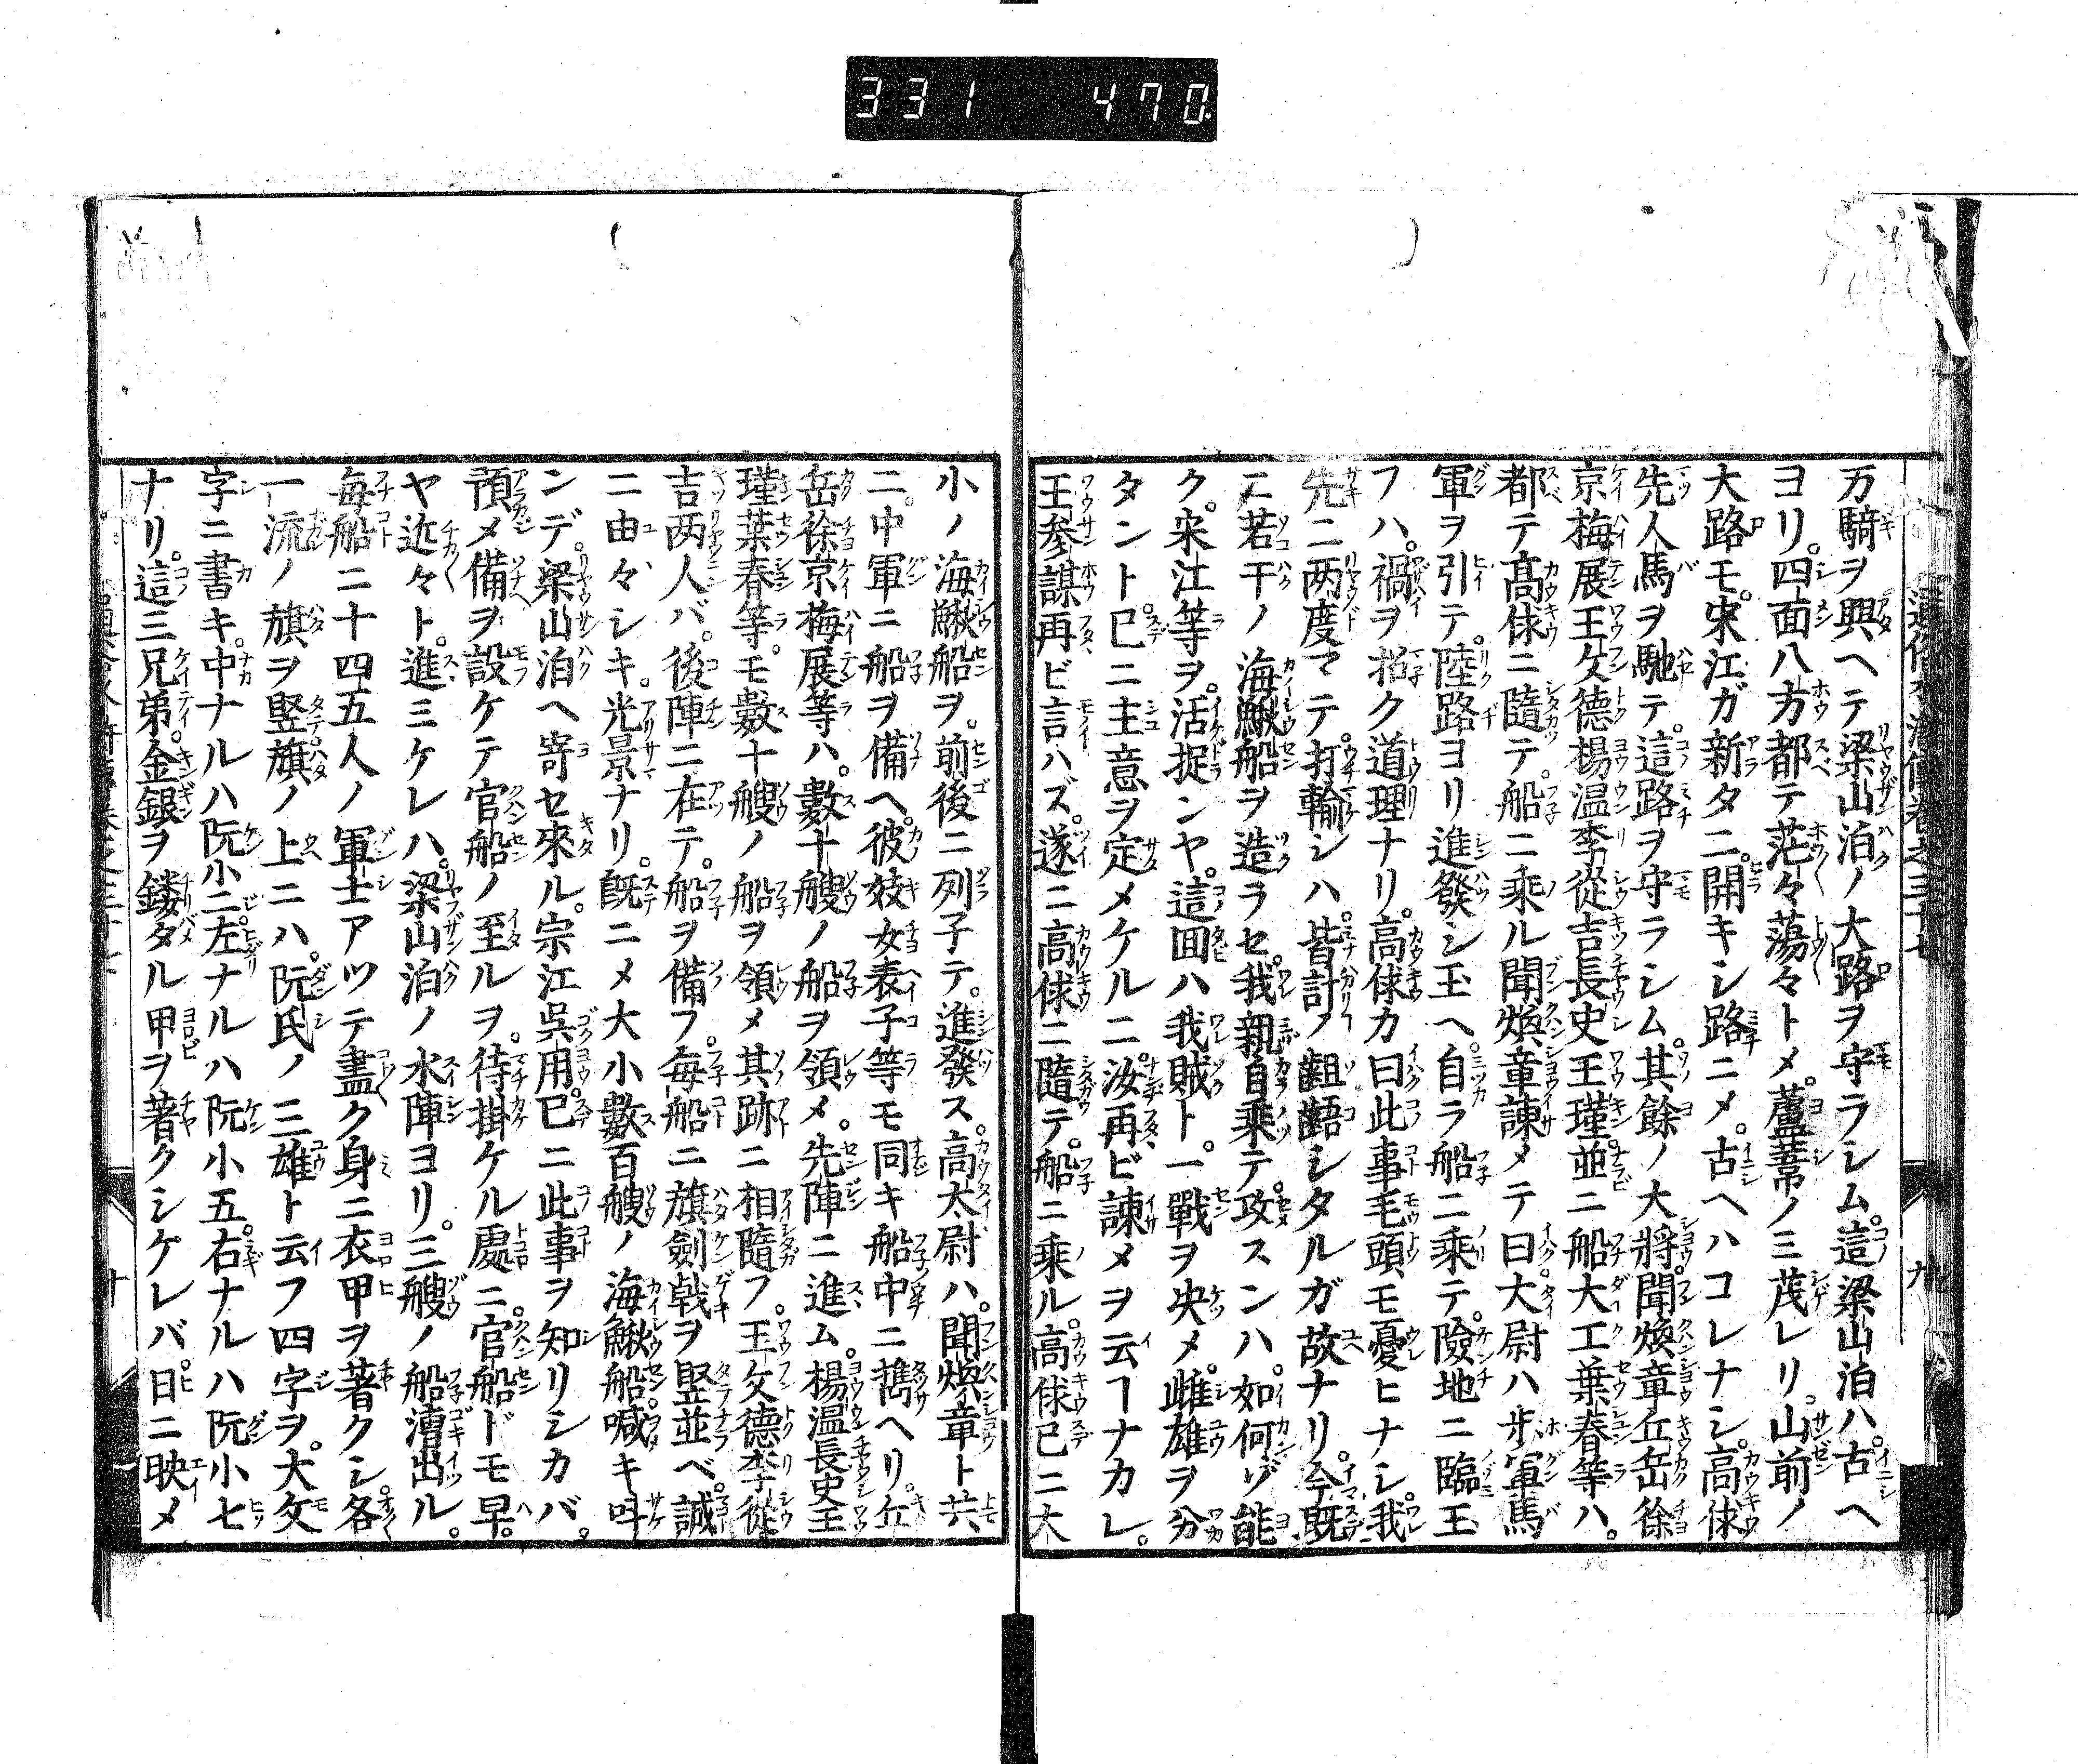 331 470
万騎ヲ興ヘテ梁山泊ノ大路ヲ守ラシム。這梁山泊ハ。古ヘ
ヨリ。四面八方都テ茫々蕩々トメ。蘆葦ノミ茂レリ。山前ノ
大路モ。宋江ガ新タニ。開キシ路ニメ。古ヘハコレナシ。高俅
先人馬ヲ馳テ。這路ヲ守ラシム。其餘ノ大將。聞煥章丘岳徐
京梅展王文德楊温李從吉長史王瑾並ニ船大工葉春等ハ。
都テ高俅ニ隨テ。船ニ乘ル聞煥章諫メテ曰。大尉ハ歩軍馬
軍ヲ引テ。陸路ヨリ進發シ玉ヘ。自ラ船ニ乘テ。險地ニ臨玉
フハ。禍ヲ招ク道理ナリ。高俅カ曰此事毛頭モ憂ヒナシ。我
先ニ两度マテ。打輸シハ。皆計ノ齟齬シタルガ故ナリ。今既
ニ若干ノ海鰍船ヲ造ラセ。我親自乘テ。攻スンハ。如何ゾ能
ク。宋江等ヲ。活捉ンヤ。這囬ハ我賊ト。一戰ヲ决メ。雌雄ヲ分
タント。已ニ主意ヲ定メケルニ。汝再ビ諫メヲ云ヿナカレ。
王参謀再ビ言ハズ。遂ニ高俅ニ隨テ。船ニ乘ル。高俅已ニ大
小ノ海鰍船ヲ。前後ニ列子テ。進發ス。高太尉ハ。聞煥章ト共
ニ。中軍ニ船ヲ備ヘ。彼妓女表子等モ同キ船中ニ携ヘリ。丘
岳徐京梅展等ハ。數十艘ノ船ヲ領メ。先陣ニ進ム。楊温長史王
瑾葉春等。モ數十艘ノ船ヲ領メ其跡ニ相隨フ。王文德李從
吉两人バ。後陣ニ在テ。船ヲ備フ。毎船ニ旗劍戟ヲ竪並ベ。誠
ニ由々シキ。光景ナリ。既ニメ大小數百艘ノ海鰍船。喊キ呌
ンデ。梁山泊ヘ寄セ來ル。宗江呉用已ニ此事ヲ知リシカバ。
預メ備ヲ設ケテ官船ノ至ルヲ。待掛ケル處ニ。官船ドモ早。
ヤ近々ト。進ミケレハ。梁山泊ノ水陣ヨリ。三艘ノ船漕出ル。
毎船ニ十四五人ノ軍士アツテ盡ク身ニ衣甲ヲ著クシ。各
一流ノ旗ヲ竪旗ノ上ニハ。阮氏ノ三雄ト云フ四字ヲ。大文
字ニ書キ。中ナルハ阮小二。左ナルハ阮小五。右ナルハ阮小七
ナリ。這三兄弟。金銀ヲ鏤タル甲ヲ著クシケレバ。日ニ映メ